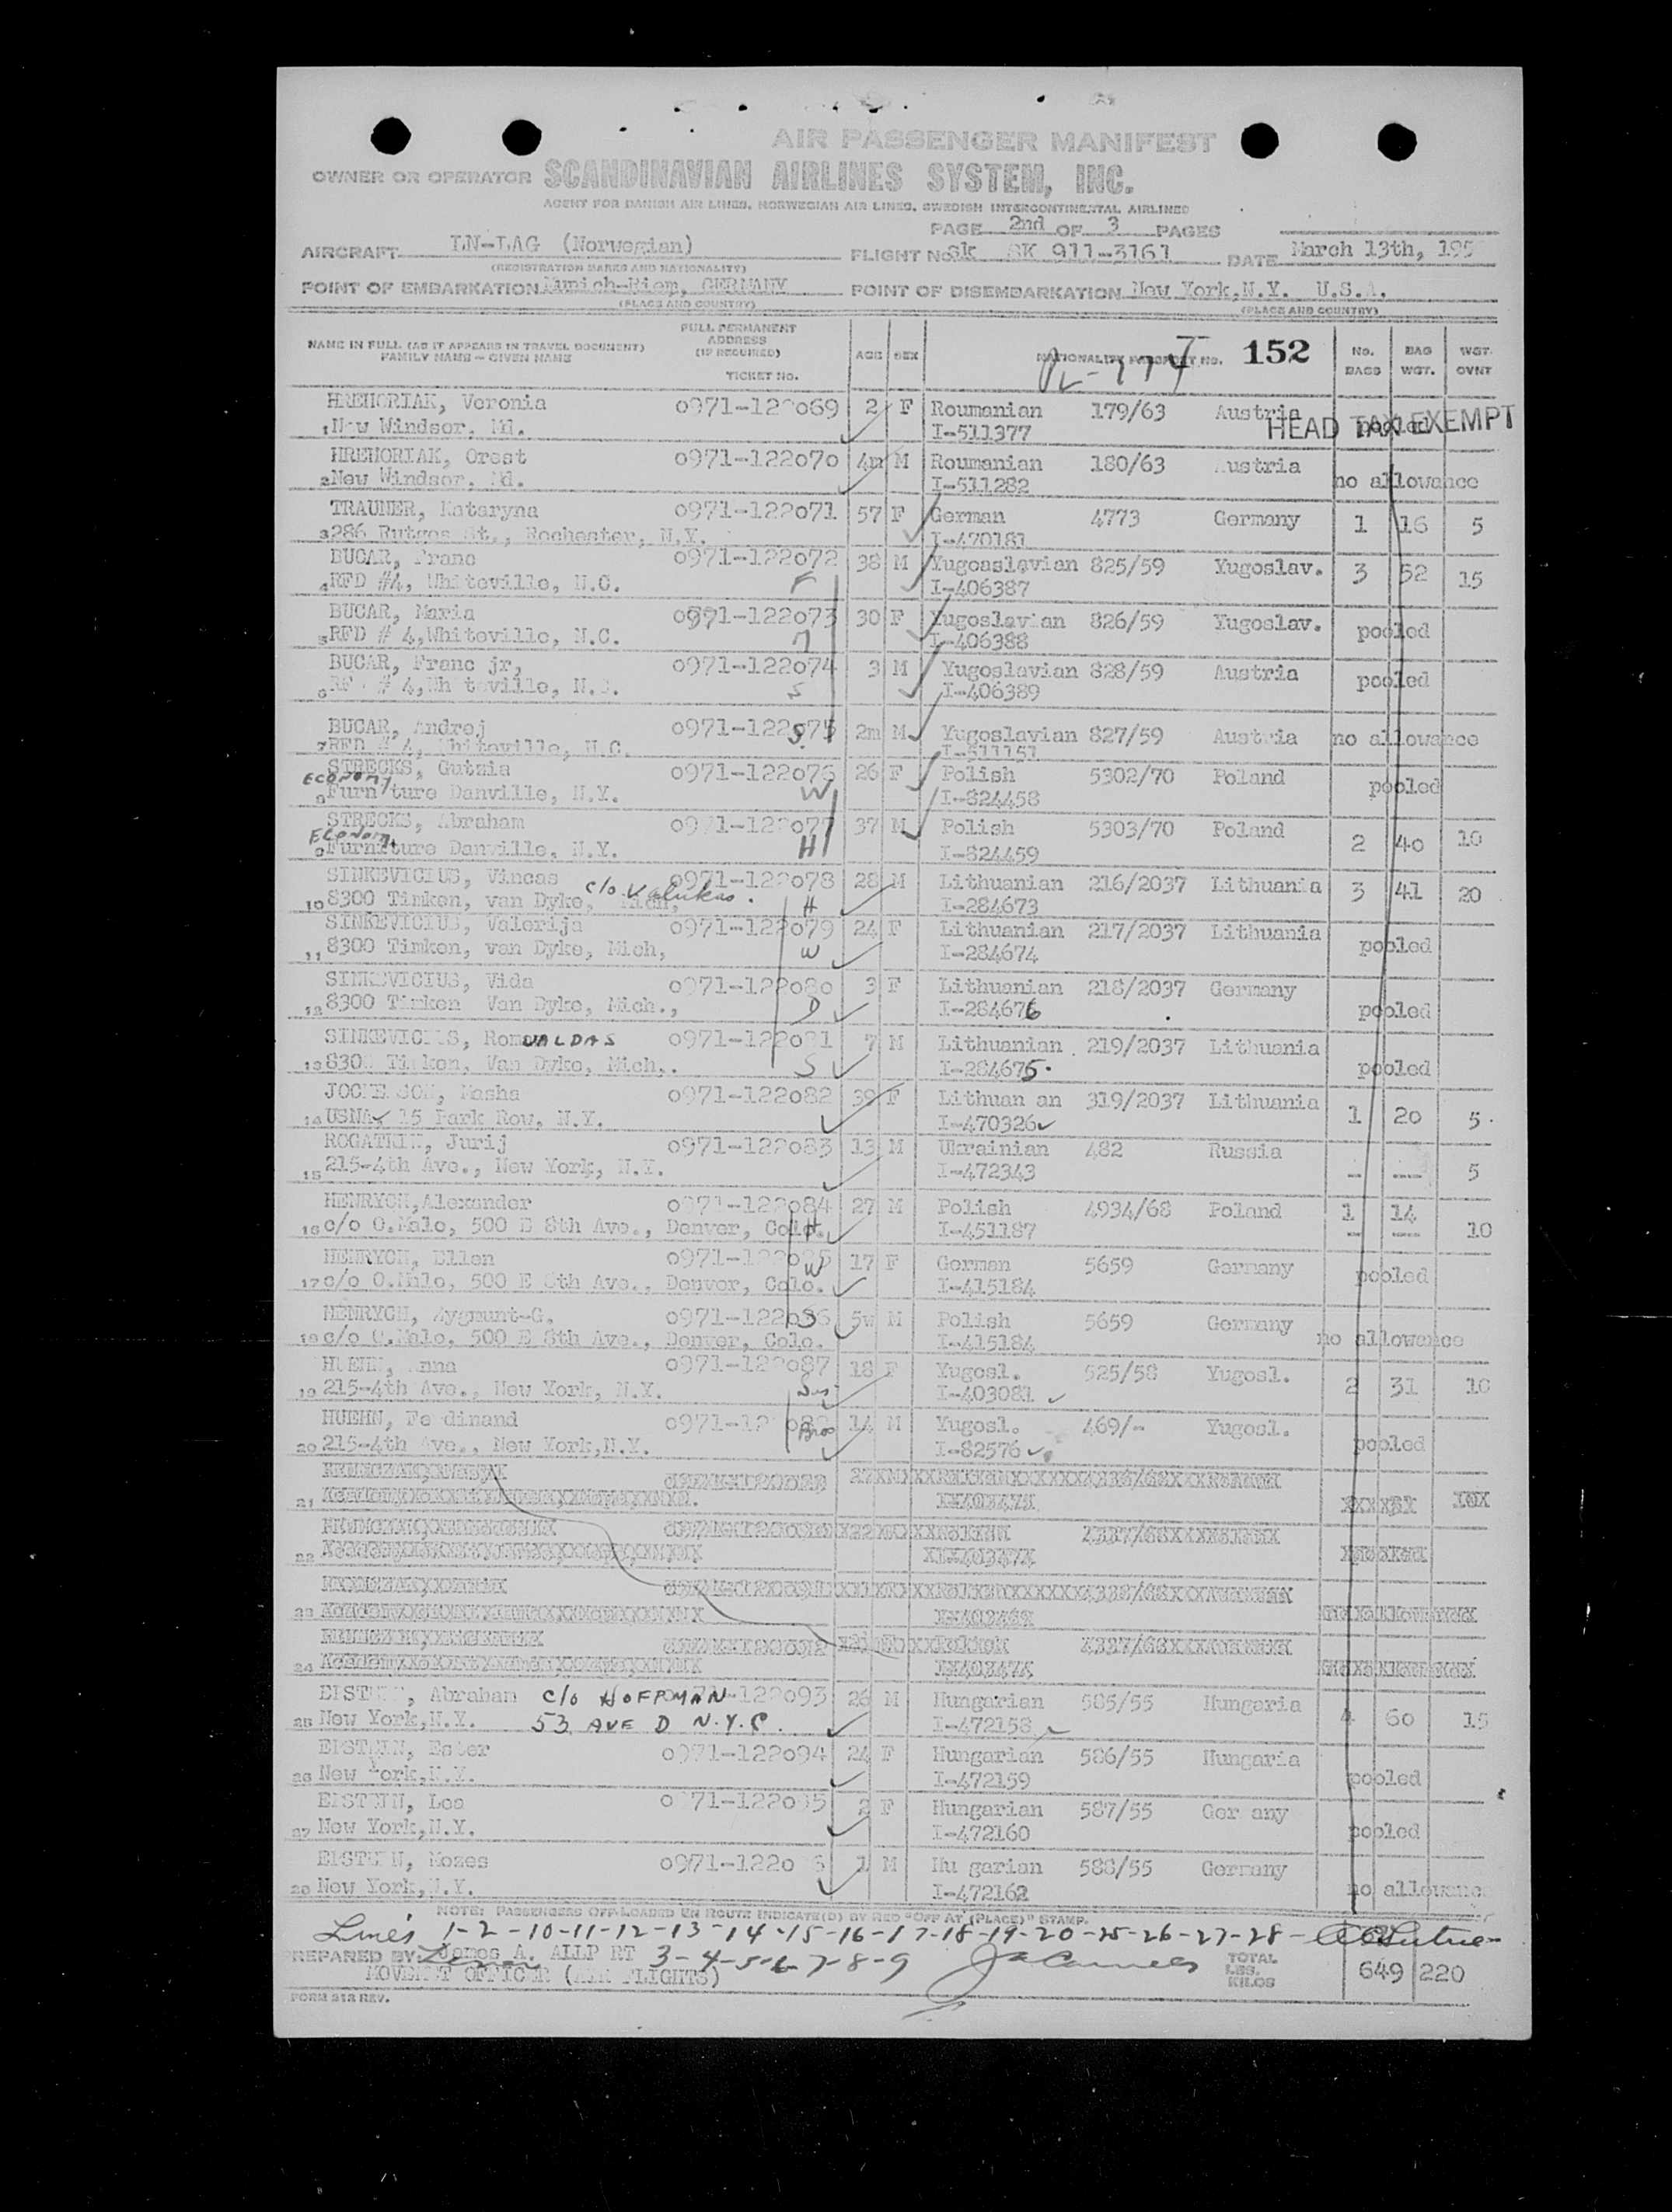 AIR PASSENGER MANIFEST
OWNER OR OPERATOR SCANDINAVIAN AIRLINES SYSTEM, INC.
AGENT FOR DANISH AIR LINES, NORWEGIAN AIR LINES, SWEDISH INTERCONTINENTAL AIRLINES
PAGE 2nd OF 3 PAGES
AIRCRAFT LN-LAG (Norwegian) FLIGHT No. Sk SK 911-3161 DATE March 13th, 195
(REGISTRATION MARKS AND NATIONALITY)
POINT OF EMBARKATION Munich-Riem, GERMANY POINT OF DISEMBARKATION New York, N.Y. U.S.A.
(PLACE AND COUNTRY) (PLACE AND COUNTRY)
NAME IN FULL (AS IT APPEARS IN TRAVEL DOCUMENT) FAMILY NAME - GIVEN NAME FULL PERMANENT ADDRESS (IF REQUIRED) TICKET NO. AGE SEX NATIONALITY PASSPORT NO. 152 NO. BAGS BAG WGT. WGT. OVNT
HREHORIAK, Veronia 0971-122069 2 F Roumanian 179/63 Austria pooled
1 New Windsor, Md. I-511377 HEAD TAX EXEMPT
HREHORIAK, Orest 0971-122070 4m M Roumanian 180/63 Austria
2 New Windsor, Md. I-511282 no allowance
TRAUNER, Kataryna 0971-122071 57 F German 4773 Germany 1 16 5
3 286 Rutges St., Rochester, N.Y. I-470181
BUCAR, Franc 0971-122072 38 M Yugoaslavian 825/59 Yugoslav. 3 52 15
4 RFD #4, Whiteville, N.C. F I-406387
BUCAR, Maria 0971-122073 30 F Yugoslavian 826/59 Yugoslav. pooled
5 RFD # 4, Whiteville, N.C. I-406388
BUCAR, Franc jr, 0971-122074 3 M Yugoslavian 828/59 Austria pooled
6 # 4, Whiteville, N.C. S I-406389
BUCAR, Andrej 0971-122075 2m M Yugoslavian 827/59 Austria no allowance
7 RFD # 4, Whiteville, N.C. S. I-511151
STRECKS, Gutzia 0971-122076 26 F Polish 5302/70 Poland pooled
ECONOMY
8 Furniture Danville, N.Y. W I-824458
STRECKS, Abraham 0971-122077 37 M Polish 5303/70 Poland 2 40 10
Economy
9 Furniture Danville, N.Y. H I-824459
SINKEVICIUS, Vincas 0971-122078 28 M Lithuanian 216/2037 Lithuania 3 41 20
10 8300 Timken, van Dyke, Mich, c/o Valukas. H I-284673
SINKEVICIUS, Valerija 0971-122079 24 F Lithuanian 217/2037 Lithuania pooled
11 8300 Timken, van Dyke, Mich, W I-284674
SINKEVICIUS, Vida 0971-122080 3 F Lithuanian 218/2037 Germany
12 8300 Timken Van Dyke, Mich., D I-284676 pooled
SINKEVICIUS, RomUALDAS 0971-122081 7 M Lithuanian 219/2037 Lithuania
13 8300 Timken, Van Dyke, Mich,. S I-284675. pooled
Masha 0971-122082 39 F Lithuanian 319/2037 Lithuania 1 20 5
14 USNA 15 Park Row, N.Y. I-470326
ROGATKIN, Jurij 0971-122083 13 M Ukrainian 482 Russia
15 215-4th Ave., New York, N.Y. I-472343 -- --- 5
HENRYCH, Alexander 0971-122084 27 M Polish 4934/68 Poland 1 14
16 c/o O.Malo, 500 E 8th Ave., Denver, Colo. H I-451187 -- --- 10
HENRYCH, Ellen 0971-122085 17 F German 5659 Germany pooled
17 c/o O.Milo, 500 E 8th Ave., Denver, Colo. W I-415184
HENRYCH, Zygmunt-G. 0971-122086 5w M Polish 5659 Germany
18 c/o O.Malo, 500 E 8th Ave., Denver, Colo. S I-415184 no allowance
HUEHN, Anna 0971-122087 18 F Yugosl. 525/58 Yugosl. 2 31 10
19 215-4th Ave., New York, N.Y. Sis I-403081
HUEHN, Ferdinand 0971-122088 14 M Yugosl. 469/- Yugosl.
20 215-4th Ave., New York,N.Y. Bro I-82576 pooled
21
22
23
24
Abraham c/o HOFFMAN 122093 26 M Hungarian 585/55 Hungaria 4 60 15
25 New York,N.Y. 53 AVE D N.Y.C. I-472158
EISTEIN, Ester 0971-122094 24 F Hungarian 586/55 Hungaria
26 New York,N.Y. I-472159 pooled
EISTEIN, Lea 0971-122095 2 F Hungarian 587/55 Germany
27 New York,N.Y. I-472160 pooled
EISTEIN, Mozes 0971-122096 1 M Hungarian 588/55 Germany
28 New York,N.Y. I-472162 no allowance
NOTE: PASSENGERS OFF-LOADED EN ROUTE INDICATE(D) BY RED "OFF AT (PLACE)" STAMP.
Lines 1-2-10-11-12-13-14-15-16-17-18-19-20-25-26-27-28-
PREPARED BY: James A. ALLP RT 3-4-5-6-7-8-9 TOTAL LBS. KILOS 649 220
MOVEMENT OFFICER (AIR FLIGHTS)
FORM 212 REV.